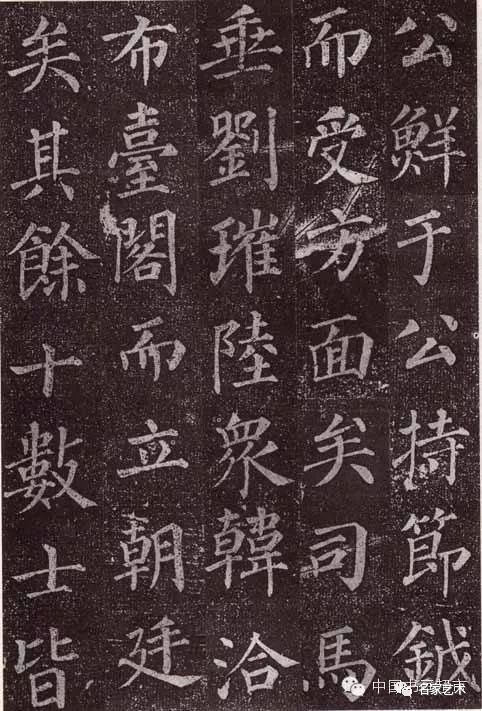 公鮮于公持節鉞
而受方面矣司馬
垂劉璀陸衆韓洽
布臺閣而立朝廷
矣其餘十數士皆
名家艺术